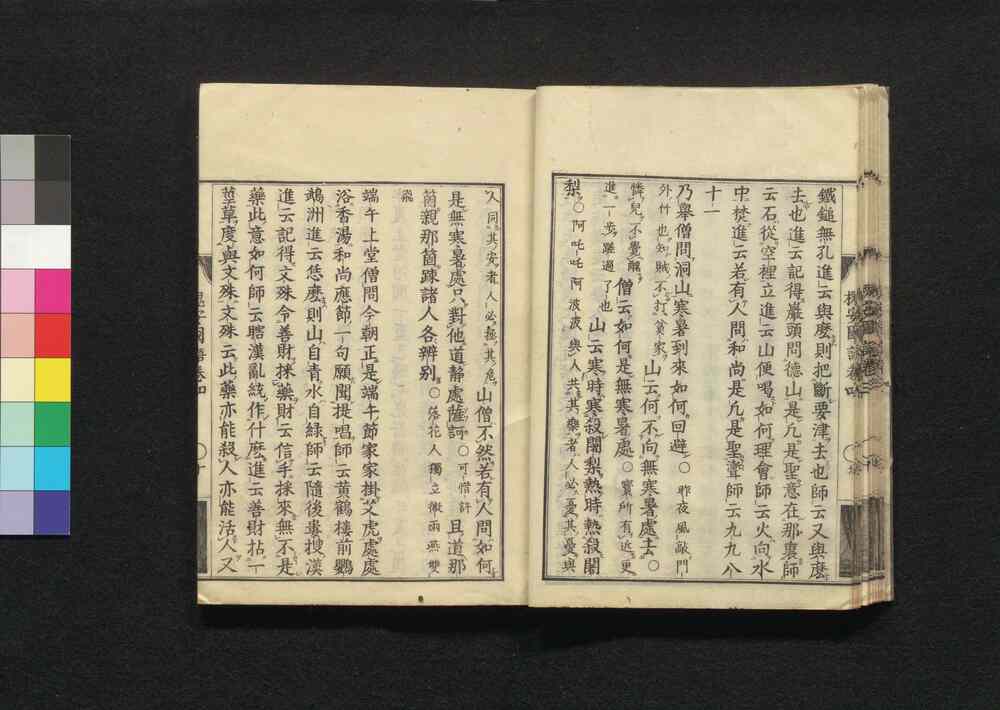 鐵鎚無孔進云與麼則把斷要津去也師云又與麼
去也進云記得巖頭問德山是凡是聖意在那裏師
云石從空裡立進云山便喝如何理會師云火向水
中焚進云若有人問和尚是凡是聖聻師云九九八
十一
乃舉僧問洞山寒暑到來如何回避○昨夜風敲門
外竹也知賊不打貧家山云何不向無寒暑處去○
憐兒不覺醜僧云如何是無寒暑處○實所有近更
進一步難過了也山云寒時寒殺闍梨熱時熱殺闍
梨○阿吒吒阿波波與人共其樂者人必憂其憂與
人同其安者人必拯其危山僧不然若有人問如何
是無寒暑處只對他道靜處薩訶○可惜許且道那
箇親那箇疎諸人各辨別○落花人獨立微雨燕雙
飛
端午上堂僧問今朝正是端午節家家掛艾虎處處
浴香湯和尚應節一句願聞提唱師云黃鶴樓前鸚
鵡洲進云恁麼則山自青水自綠師云隨後婁搜漢
進云記得文殊令善財採藥財云信手採來無不是
藥此意如何師云瞎漢亂統作什麼進云善財拈一
莖草度與文殊文殊云此藥亦能殺人亦能活人又